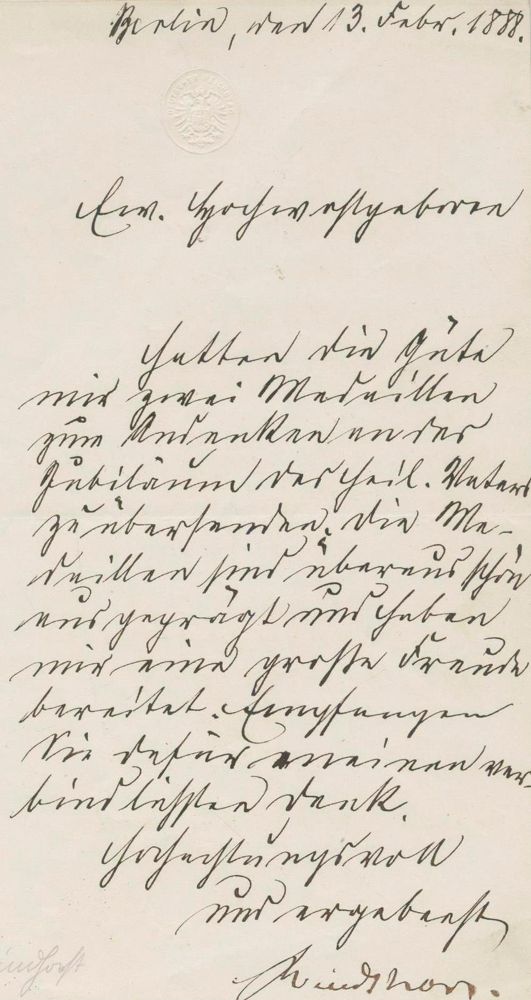 Berlin, den 13. Febr. 1888.
Ew. Hochwohlgeboren
hatten die Güte
mir zwei Medaillen
zum Andenken an das
Jubiläum des heil. Vaters
zu übersenden. Die Me-
daillen sind überaus schön
ausgeprägt und haben
mir eine große Freude
bereitet. Empfangen
Sie dafür meinen ver-
bindlichsten Dank.
Hochachtungsvoll
und ergebenst
Windthorst.